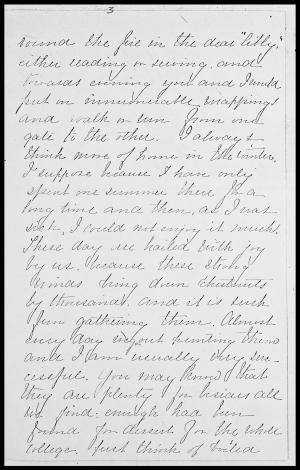 3
round the fire in the dear "libly,"
either reading or sewing, and
towards evening you and I would
put on innumerable wrappings
and walk or run from one
gate to the other. I always
think more of home in the winter.
I suppose because I have only
spent one summer there for a
long time and then, as I was
sick, I could not enjoy it much.
These day are hailed with joy
by us, because these strong
winds bring down chestnuts
by thousand. and it is such
fun gathering them. Almost
every day we go out hunting them
and I am usually very suc-
cessful. You may know that
they are plenty for besides all
we find enough had been
found for dessert for the whole
college. Just think of boiled